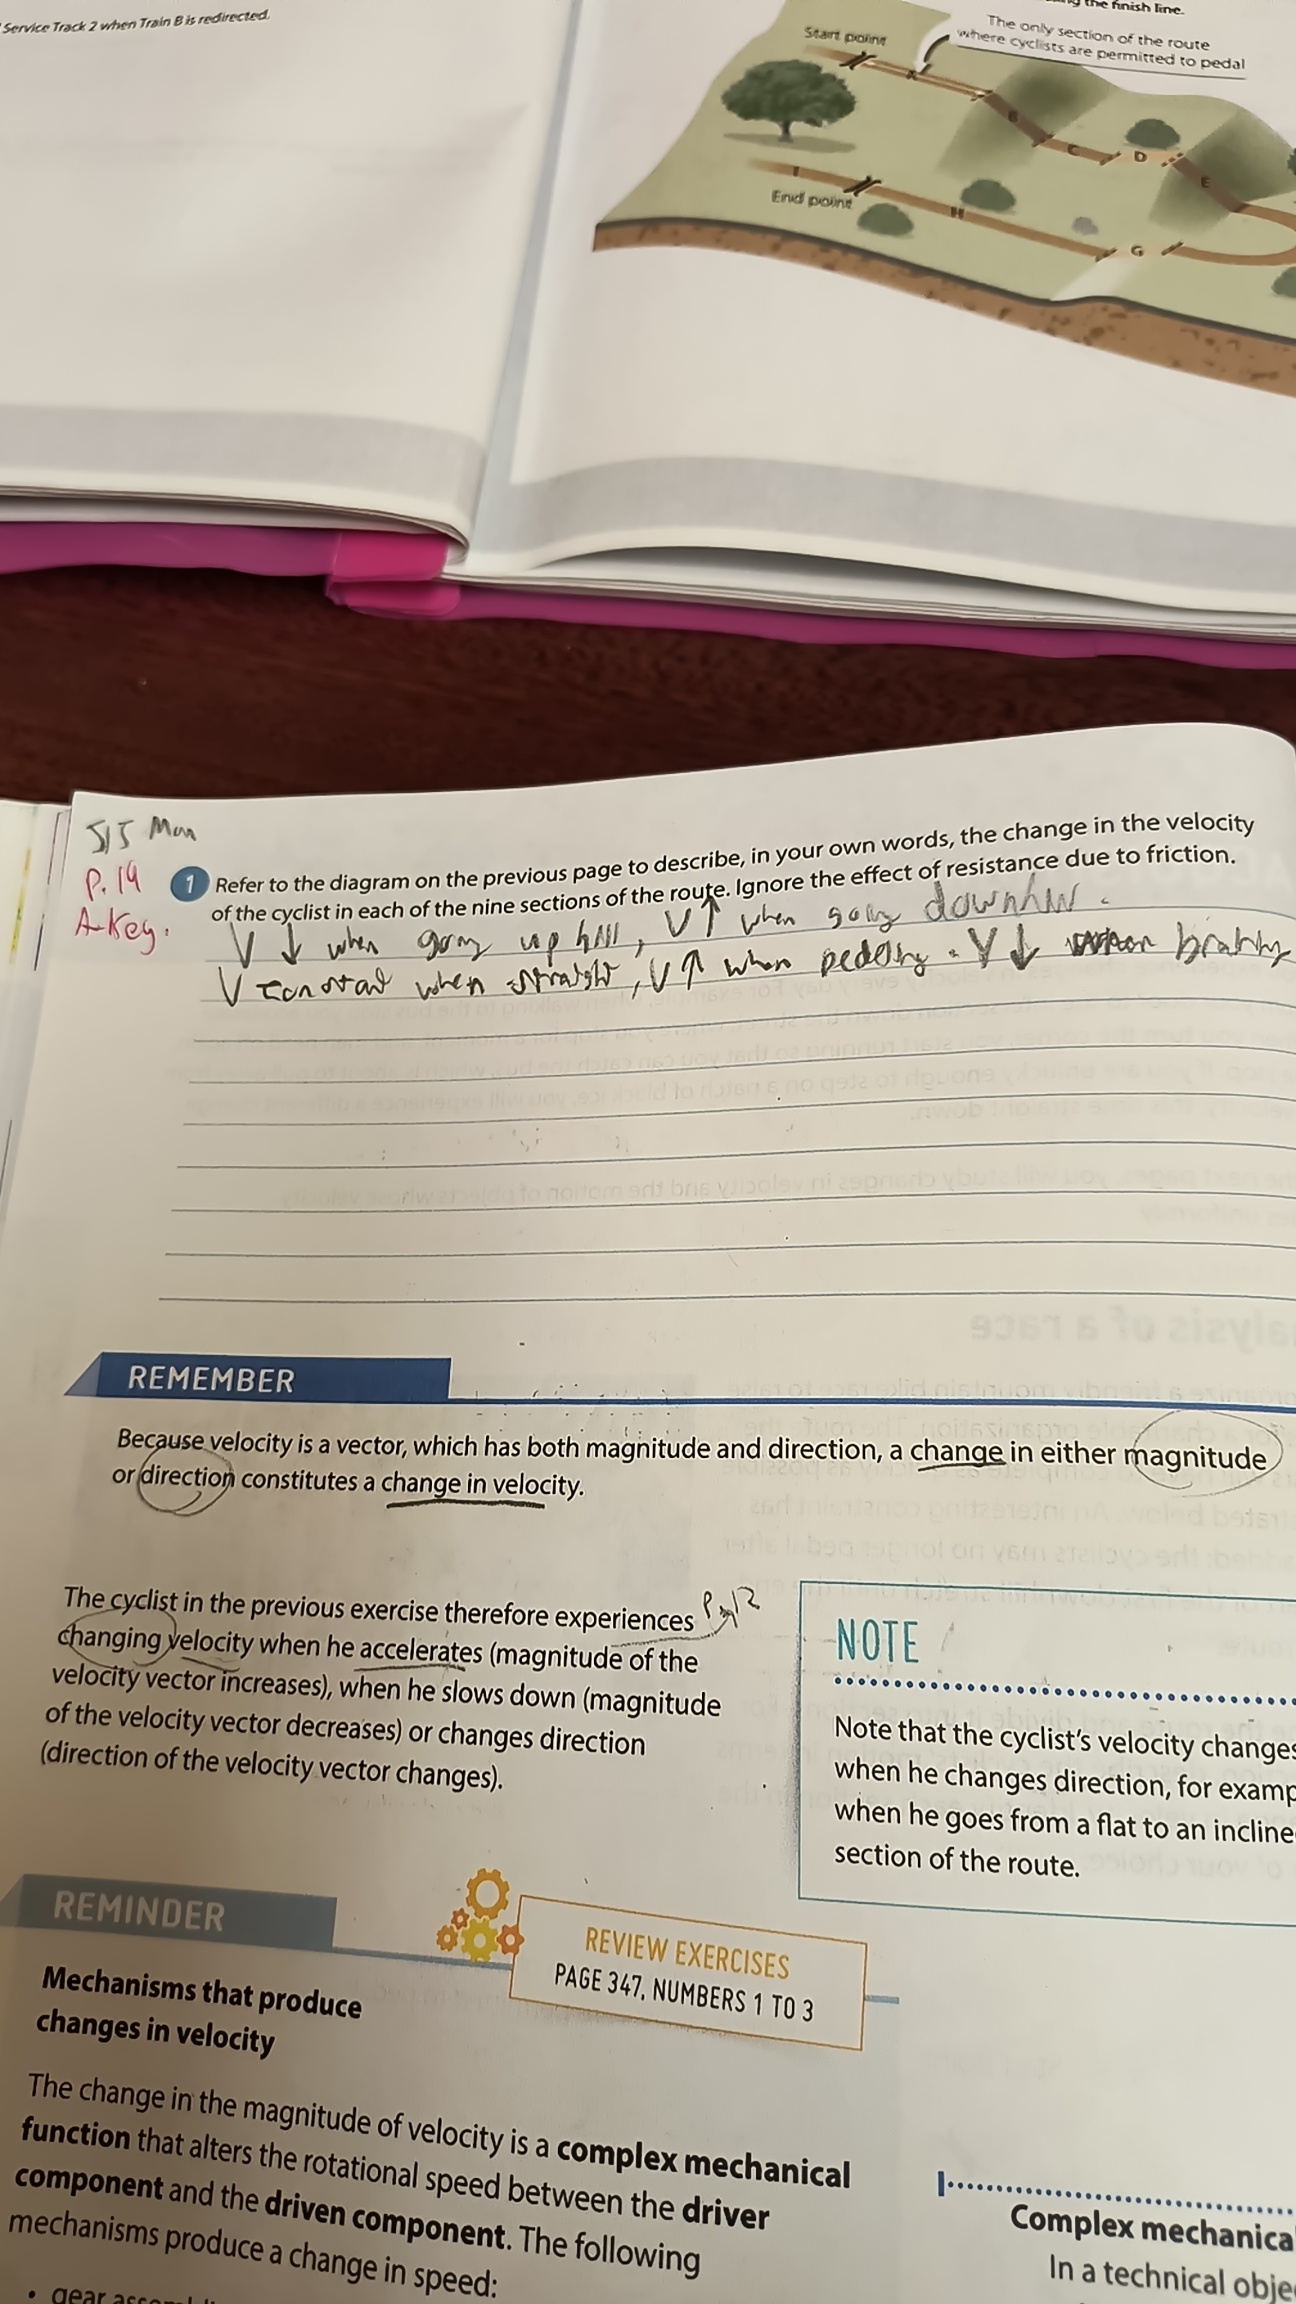 Service Track 2 when Train B is redirected.
the finish line.
The only section of the route
where cyclists are permitted to pedal
Start point
A
B
C
D
E
I
End point
H
G
5/5 Mon
P. 19
A-Key.
1 Refer to the diagram on the previous page to describe, in your own words, the change in the velocity
of the cyclist in each of the nine sections of the route. Ignore the effect of resistance due to friction.
V ↓ when going up hill, V ↑ when going downhill.
V constant when straight, V ↑ when pedeling. V ↓ when braking
REMEMBER
Because velocity is a vector, which has both magnitude and direction, a change in either magnitude
or direction constitutes a change in velocity.
The cyclist in the previous exercise therefore experiences
changing velocity when he accelerates (magnitude of the
velocity vector increases), when he slows down (magnitude
of the velocity vector decreases) or changes direction
(direction of the velocity vector changes).
NOTE
Note that the cyclist's velocity changes
when he changes direction, for examp
when he goes from a flat to an incline
section of the route.
REMINDER
REVIEW EXERCISES
PAGE 347, NUMBERS 1 TO 3
Mechanisms that produce
changes in velocity
The change in the magnitude of velocity is a complex mechanical
function that alters the rotational speed between the driver
component and the driven component. The following
mechanisms produce a change in speed:
• gear
Complex mechanica
In a technical obje